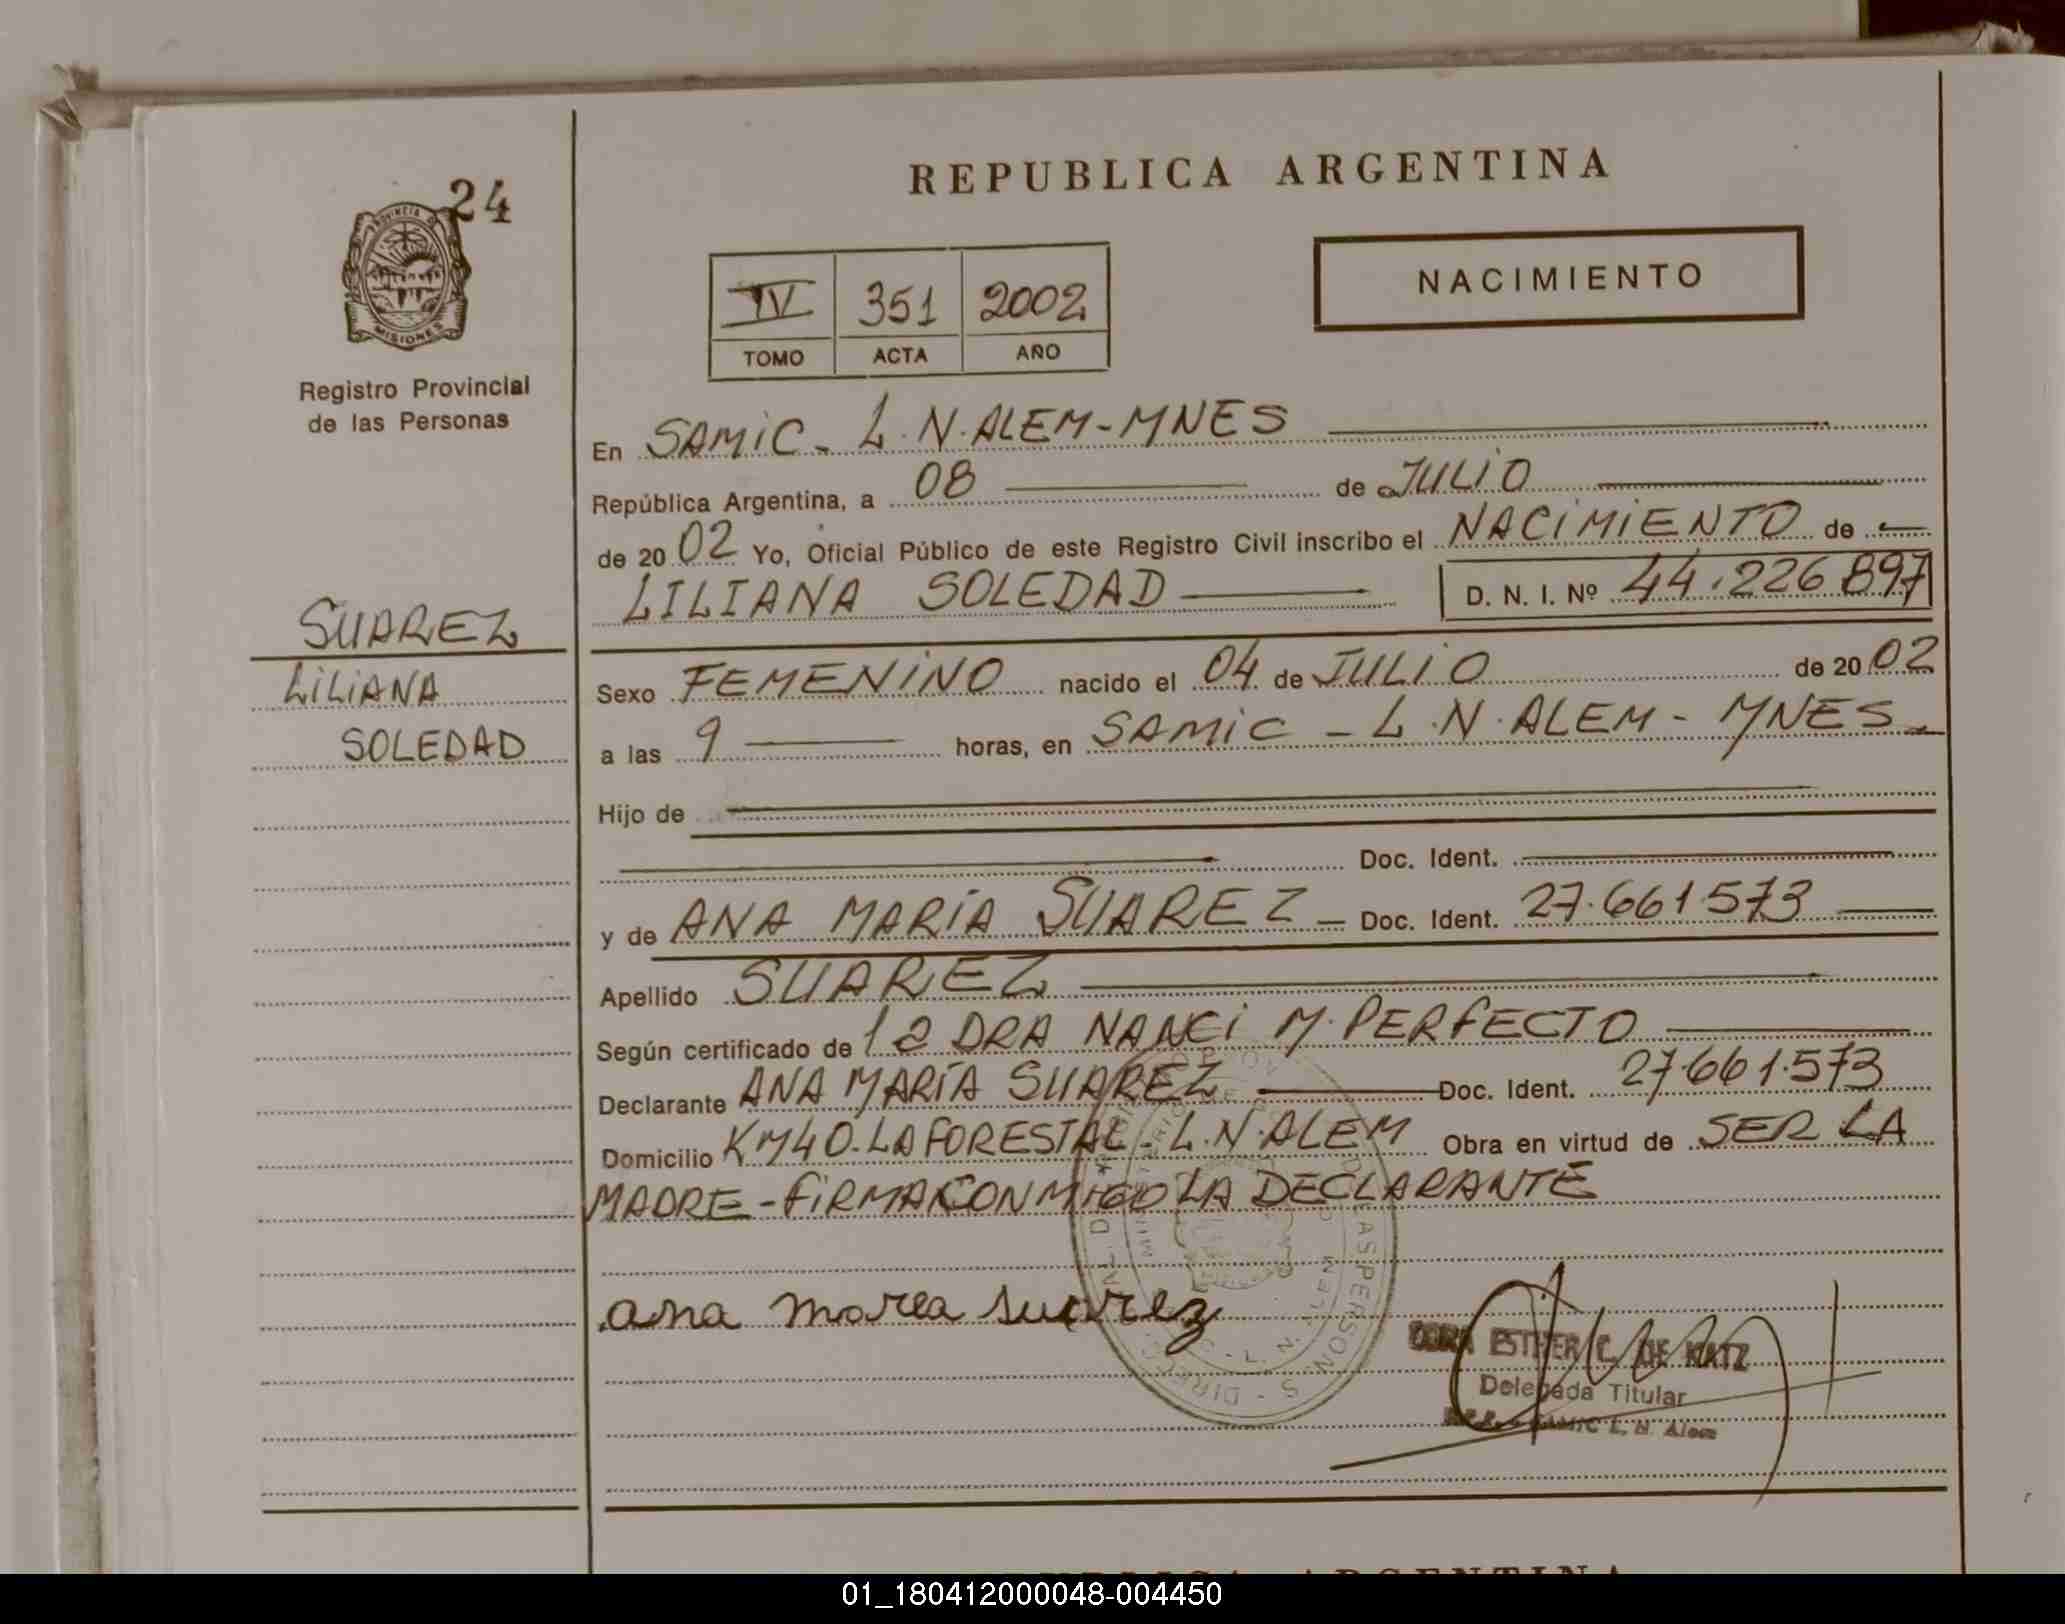 24
PROVINCIA DE
MISIONES
Registro Provincial
de las Personas
SUAREZ
LILIANA
SOLEDAD
REPUBLICA ARGENTINA
IV 351 2002
TOMO ACTA AÑO
NACIMIENTO
En SAMIC - L.N.ALEM-MNES
República Argentina, a 08 de JULIO
de 2002 Yo, Oficial Público de este Registro Civil inscribo el NACIMIENTO de
LILIANA SOLEDAD D. N. I. Nº 44.226.897
Sexo FEMENINO nacido el 04 de JULIO de 2002
a las 9 horas, en SAMIC - L.N.ALEM - MNES
Hijo de
Doc. Ident.
y de ANA MARÍA SUAREZ - Doc. Ident. 27.661.573
Apellido SUAREZ
Según certificado de la DRA NANCI M. PERFECTO
Declarante ANA MARÍA SUAREZ Doc. Ident. 27.661.573
Domicilio KM40-LA FORESTAL-L.N.ALEM Obra en virtud de SER LA
MADRE-FIRMA CONMIGO LA DECLARANTE
ana marea suarez
DORA ESTHER C. DE KATZ
Delegada Titular
SAMIC L. N. Alem
01_180412000048-004450